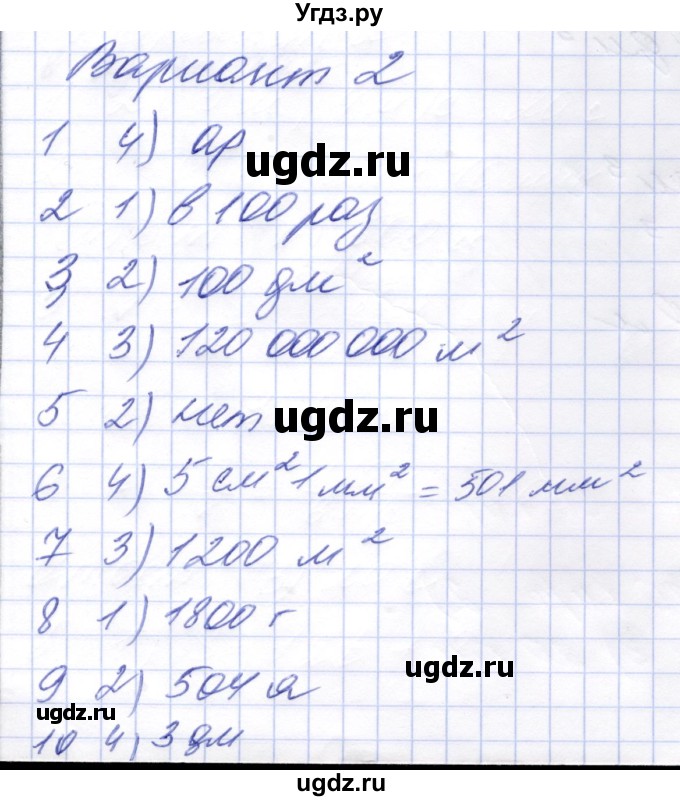 Угдз.ру
Вариант 2
1 4) ар
ugdz.ru
2 1) в 100 раз
3 2) 100 дм²
4 3) 120 000 000 м²
5 2) нет
ugdz.ru
6 4) 5 см² 1 мм² = 501 мм²
7 3) 1200 м²
8 1) 1800 г
ugdz.ru
9 2) 504 а
ugdz.ru
10 4) 3 дм
ugdz.ru